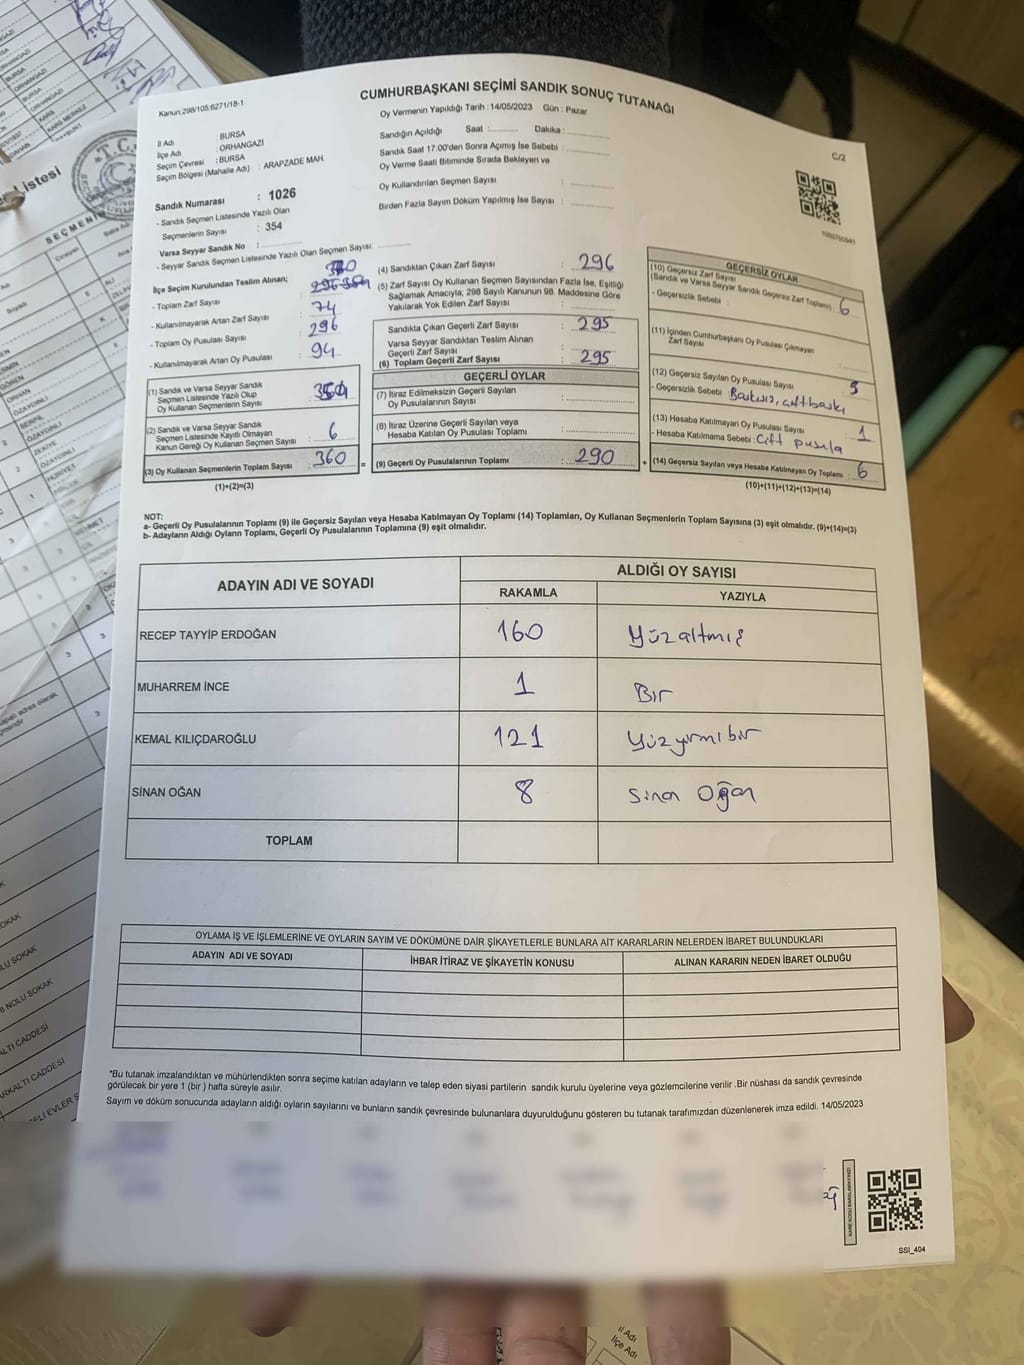 Kanun,298/105,6271/18-1
CUMHURBAŞKANI SEÇİMİ SANDIK SONUÇ TUTANAĞI
Oy Vermenin Yapıldığı Tarih : 14/05/2023 Gün : Pazar
C/2
İl Adı : BURSA
İlçe Adı : ORHANGAZİ
Seçim Çevresi : BURSA
Seçim Bölgesi (Mahalle Adı) : ARAPZADE MAH.
Sandık Numarası : 1026
- Sandık Seçmen Listesinde Yazılı Olan
Seçmenlerin Sayısı : 354
Varsa Seyyar Sandık No :
- Seyyar Sandık Seçmen Listesinde Yazılı Olan Seçmen Sayısı:
Sandığın Açıldığı Saat : Dakika :
Sandık Saat 17.00'den Sonra Açımış İse Sebebi :
Oy Verme Saati Bitiminde Sırada Bekleyen ve
Oy Kullandırılan Seçmen Sayısı :
Birden Fazla Sayım Döküm Yapılmış İse Sayısı :
İlçe Seçim Kurulundan Teslim Alınan;
- Toplam Zarf Sayısı :
- Kullanılmayarak Artan Zarf Sayısı : 74
- Toplam Oy Pusulası Sayısı : 296
- Kullanılmayarak Artan Oy Pusulası : 94
(1) Sandık ve Varsa Seyyar Sandık
Seçmen Listesinde Yazılı Olup
Oy Kullanan Seçmenlerin Sayısı :
(2) Sandık ve Varsa Seyyar Sandık
Seçmen Listesinde Kayıtlı Olmayan
Kanun Gereği Oy Kullanan Seçmen Sayısı : 6
(3) Oy Kullanan Seçmenlerin Toplam Sayısı : 360
(1)+(2)=(3)
(4) Sandıktan Çıkan Zarf Sayısı : 296
(5) Zarf Sayısı Oy Kullanan Seçmen Sayısından Fazla İse, Eşitliği
Sağlamak Amacıyla; 298 Sayılı Kanunun 98. Maddesine Göre
Yakılarak Yok Edilen Zarf Sayısı :
Sandıkta Çıkan Geçerli Zarf Sayısı : 295
Varsa Seyyar Sandıktan Teslim Alınan
Geçerli Zarf Sayısı :
(6) Toplam Geçerli Zarf Sayısı : 295
GEÇERLİ OYLAR
(7) İtiraz Edilmeksizin Geçerli Sayılan
Oy Pusulalarının Sayısı :
(8) İtiraz Üzerine Geçerli Sayılan veya
Hesaba Katılan Oy Pusulası Toplamı :
= (9) Geçerli Oy Pusulalarının Toplamı : 290
GEÇERSİZ OYLAR
(10) Geçersiz Zarf Sayısı
(Sandık ve Varsa Seyyar Sandık Geçersiz Zarf Toplamı) : 6
- Geçersizlik Sebebi :
(11) İçinden Cumhurbaşkanı Oy Pusulası Çıkmayan
Zarf Sayısı :
(12) Geçersiz Sayılan Oy Pusulası Sayısı : 5
- Geçersizlik Sebebi : Baskısız, çift baskı
(13) Hesaba Katılmayan Oy Pusulası Sayısı : 1
- Hesaba Katılmama Sebebi : Çift pusula
+ (14) Geçersiz Sayılan veya Hesaba Katılmayan Oy Toplamı : 6
(10)+(11)+(12)+(13)=(14)
NOT:
a- Geçerli Oy Pusulalarının Toplamı (9) ile Geçersiz Sayılan veya Hesaba Katılmayan Oy Toplamı (14) Toplamları, Oy Kullanan Seçmenlerin Toplam Sayısına (3) eşit olmalıdır. (9)+(14)=(3)
b- Adayların Aldığı Oyların Toplamı, Geçerli Oy Pusulalarının Toplamına (9) eşit olmalıdır.
ADAYIN ADI VE SOYADI
ALDIĞI OY SAYISI
RAKAMLA YAZIYLA
RECEP TAYYİP ERDOĞAN 160 Yüzaltmış
MUHARREM İNCE 1 Bir
KEMAL KILIÇDAROĞLU 121 Yüzyirmibir
SİNAN OĞAN 8 Sinan Oğan
TOPLAM
OYLAMA İŞ VE İŞLEMLERİNE VE OYLARIN SAYIM VE DÖKÜMÜNE DAİR ŞİKAYETLERLE BUNLARA AİT KARARLARIN NELERDEN İBARET BULUNDUKLARI
ADAYIN ADI VE SOYADI İHBAR İTİRAZ VE ŞİKAYETİN KONUSU ALINAN KARARIN NEDEN İBARET OLDUĞU
*Bu tutanak imzalandıktan ve mühürlendikten sonra seçime katılan adayların ve talep eden siyasi partilerin sandık kurulu üyelerine veya gözlemcilerine verilir .Bir nüshası da sandık çevresinde
görülecek bir yere 1 (bir ) hafta süreyle asılır.
Sayım ve döküm sonucunda adayların aldığı oyların sayılarını ve bunların sandık çevresinde bulunanlara duyurulduğunu gösteren bu tutanak tarafımızdan düzenlenerek imza edildi. 14/05/2023
SSI_404
İl Adı
İlçe Adı
Listesi
SEÇMEN
T.C.